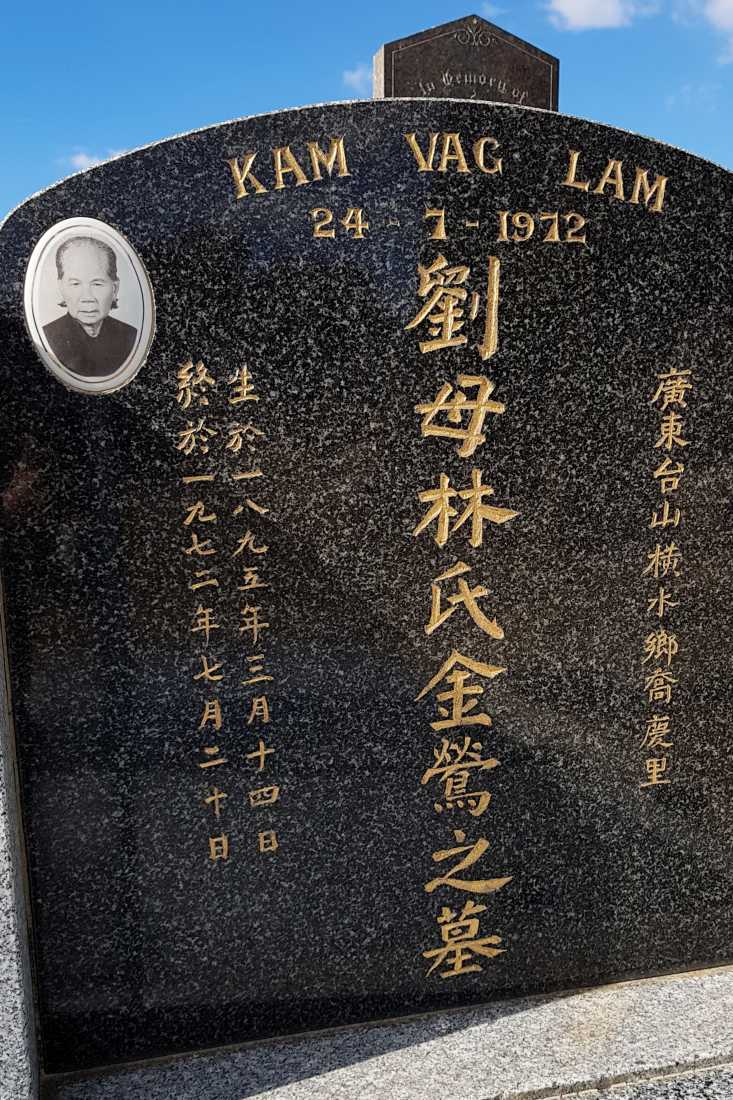 In Memory of
KAM VAG LAM
24-7-1972
廣東台山橫水鄉喬慶里
劉母林氏金鶯之墓
生於一八九五年三月十四日
終於一九七二年七月二十日